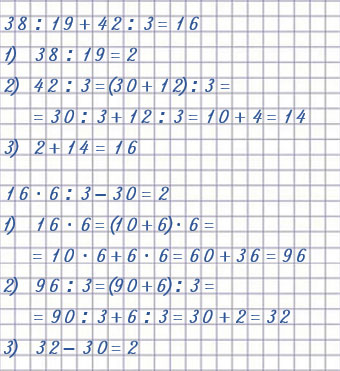 38 : 19 + 42 : 3 = 16
1) 38 : 19 = 2
2) 42 : 3 = (30 + 12) : 3 =
= 30 : 3 + 12 : 3 = 10 + 4 = 14
3) 2 + 14 = 16
16 · 6 : 3 − 30 = 2
1) 16 · 6 = (10 + 6) · 6 =
= 10 · 6 + 6 · 6 = 60 + 36 = 96
2) 96 : 3 = (90 + 6) : 3 =
= 90 : 3 + 6 : 3 = 30 + 2 = 32
3) 32 − 30 = 2